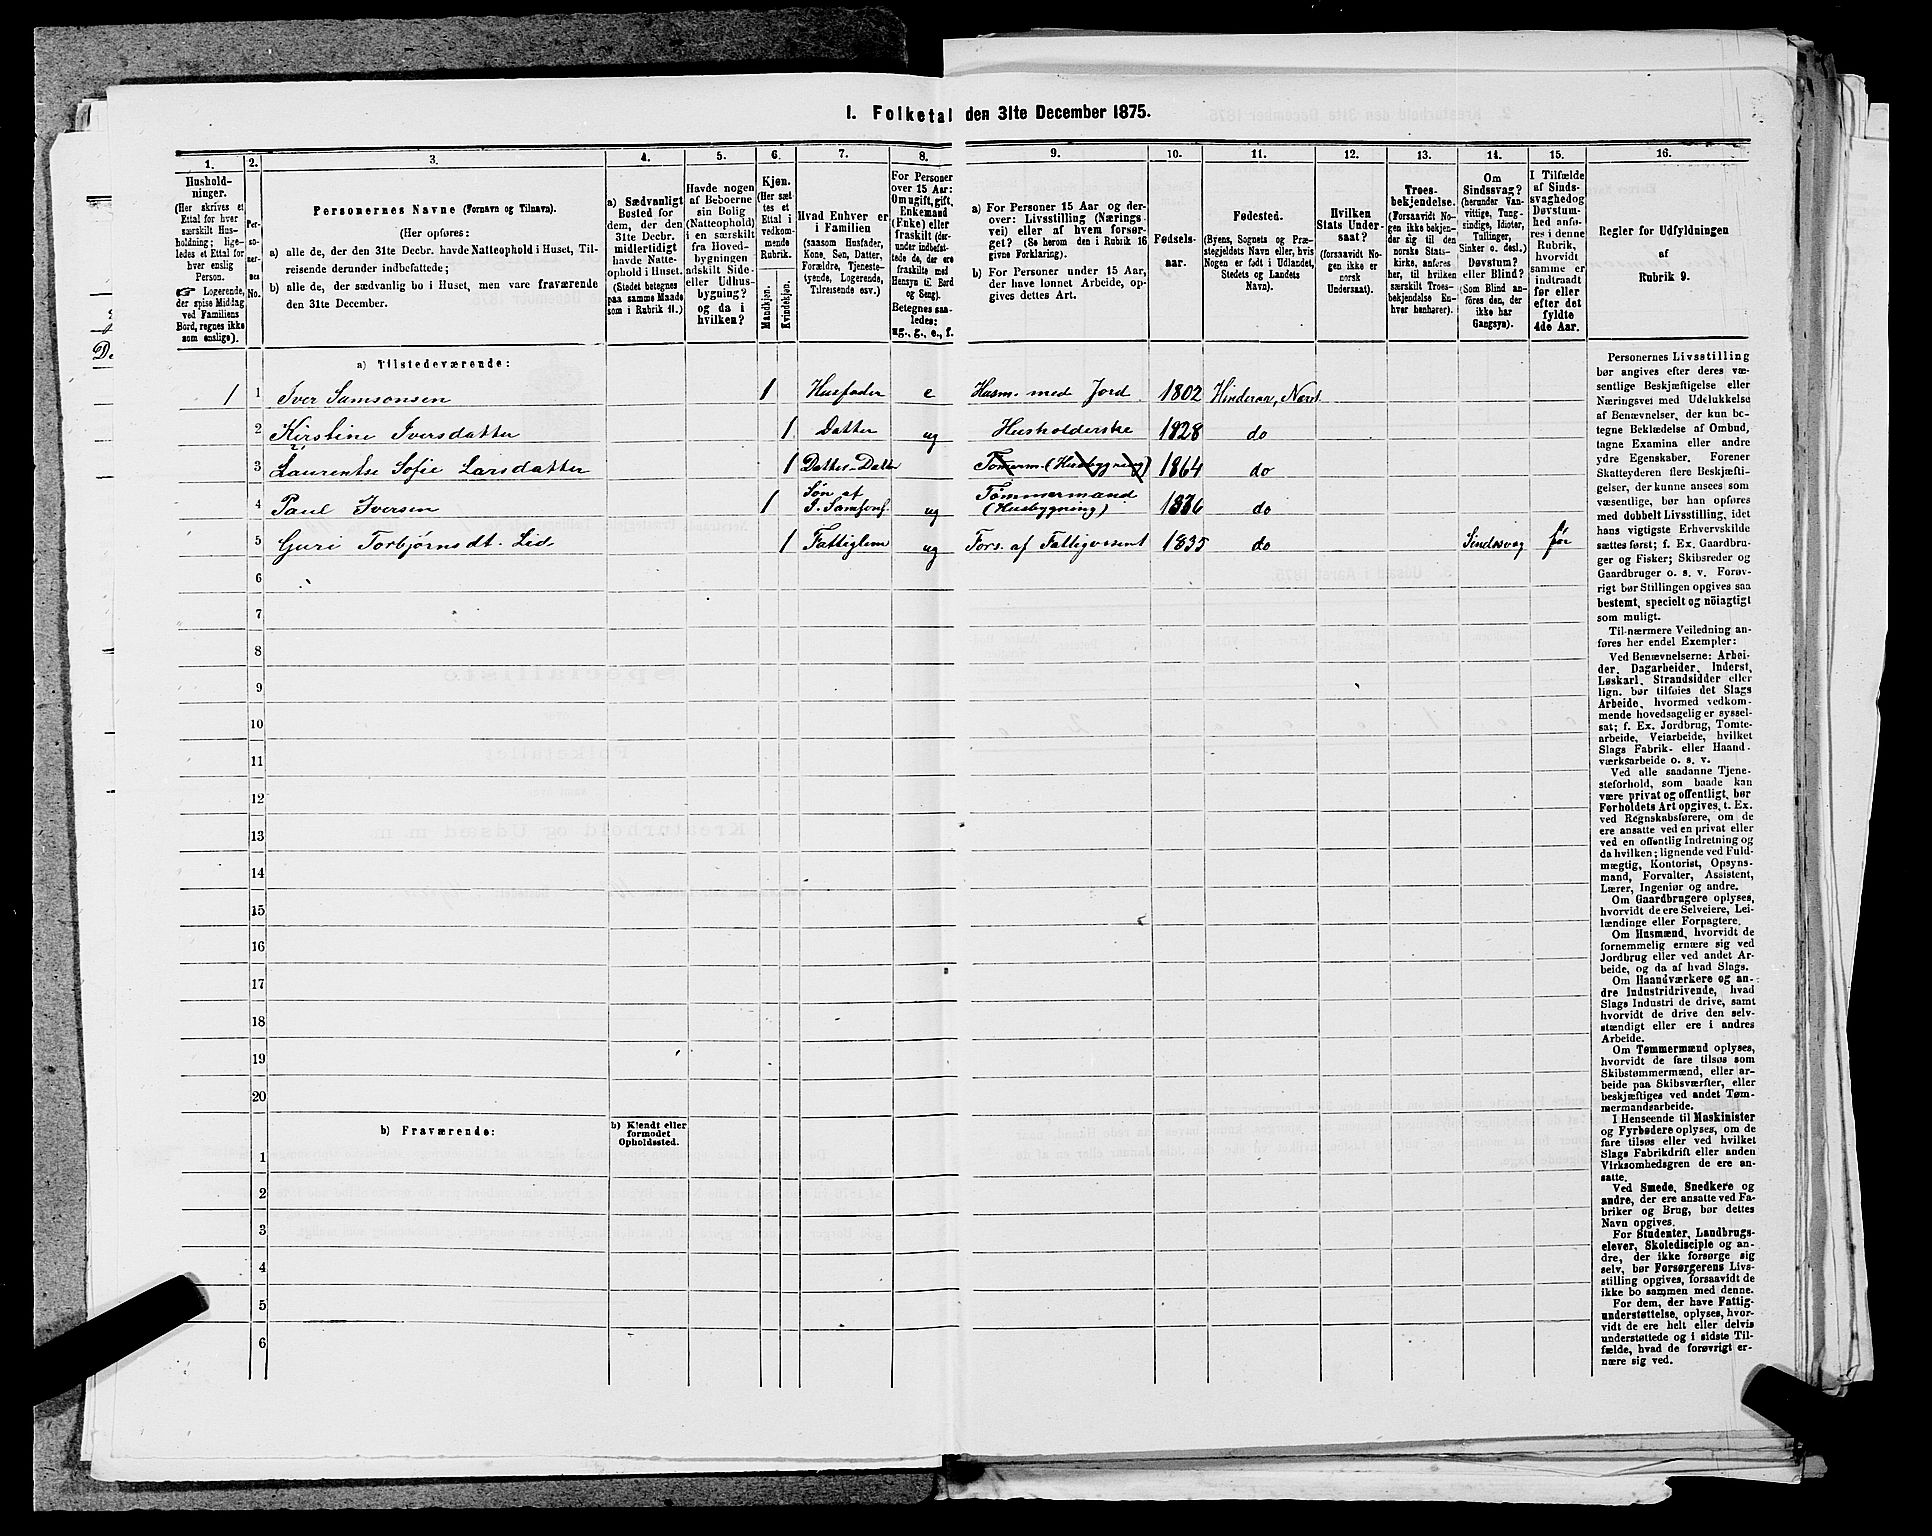 I. Folketal den 31te December 1875.
1. 2. 3. 4. 5. 6. 7. 8. 9. 10. 11. 12. 13. 14. 15. 16.
Hushold-
ninger.
(Her skrives et
Ettal for hver
særskilt Hus-
holdning; lige-
ledes et Ettal for
hver enslig
Person.
☞ Logerende,
der spise Middag
ved Familiens
Bord, regnes ikke
som enslige).
Per-
so-
ner-
nes
No.
Personernes Navne (Fornavn og Tilnavn).
(Her opføres:
a) alle de, der den 31te Decbr. havde Natteophold i Huset, Til-
reisende derunder indbefattede;
b) alle de, der sædvanlig bo i Huset, men vare fraværende
den 31te December.
a) Sædvanligt
Bosted for
dem, der den
31te Decbr.
midlertidigt
havde Natte-
ophold i Huset.
(Stedet betegnes
paa samme Maade
som i Rubrik 11.)
Havde nogen
af Beboerne
sin Bolig
(Natteophold)
i en særskilt
fra Hoved-
bygningen
adskilt Side-
eller Udhus-
bygning?
og da i
hvilken?
Kjøn.
(Her sæt-
tes et
Ettal i
vedkom-
mende
Rubrik.
Mandkjøn.
Kvindekjøn.
Hvad Enhver er
i Familien
(saasom Husfader,
Kone, Søn, Datter,
Forældre, Tjeneste-
tyende, Logerende,
Tilreisende osv.)
For Personer
over 15 Aar:
Om ugift, gift,
Enkemand
(Enke) eller
fraskilt (der-
under indbefat-
tede de, der ere
fraskilte med
Hensyn til Bord
og Seng).
Betegnes saa-
ledes:
ug., g., e., f.
a) For Personer 15 Aar og der-
over: Livsstilling (Nærings-
vei) eller af hvem forsør-
get? (Se herom den i Rubrik 16
givne Forklaring).
b) For Personer under 15 Aar,
der have lønnet Arbeide, op-
gives dettes Art.
Fødsels-
aar.
Fødested.
(Byens, Sognets og Præ-
stegjeldets Navn eller, hvis
Nogen er født i Udlandet,
Stedets og Landets
Navn).
Hvilken
Stats Under-
saat?
(forsaavidt No-
gen ikke er
norsk
Undersaat).
Troes-
bekjendelse.
(Forsaavidt No-
gen ikke bekjen-
der sig til den
norske Stats-
kirke, anføres
her, til hvilken
særskilt Troes-
bekjendelse En-
hver henhører).
Om
Sindssvag?
(herunder Van-
vittige, Tung-
sindige, Idioter,
Tullinger,
Sinker o. desl.)
Døvstum?
eller Blind?
(Som Blind an-
føres den, der
ikke har
Gangsyn).
I Tilfælde
af Sinds-
svaghed og
Døvstum-
hed anfø-
res i denne
Rubrik,
hvorvidt
samme er
indtraadt
før eller
efter det
fyldte
4de Aar.
Regler for Udfyldningen
af
Rubrik 9.
a) Tilstedeværende:
1 1 Iver Samsonsen 1 Husfader e Husm. med Jord 1802 Hinderaa, Næst.
2 Kirstine Iversdatter 1 Datter ug Husholderske 1828 do
3 Laurentse Sofie Larsdatter 1 Datter-Datter Tømerm. (Husbygning) 1864 do
4 Paul Iversen 1 Søn af I. Samsons. ug Tømmermand (Husbygning) 1836 do
5 Guri Torbjørnsdt. Lid 1 Fattiglem ug Fors. af Fattigvesent 1835 do Sindssvag før
6
7
8
9
10
11
12
13
14
15
16
17
18
19
20
b) Fraværende:
b) Kjendt eller
formodet
Opholdssted.
1
2
3
4
5
6
Personernes Livsstilling
bør angives efter deres væ-
sentlige Beskjæftigelse eller
Næringsvei med Udelukkelse
af Benævnelser, der kun be-
tegne Beklædelse af Ombud,
tagne Examina eller andre
ydre Egenskaber. Forener
Skatteyderen flere Beskjæfti-
gelser, der kunne ansees som
væsentlige, bør han opføres
med dobbelt Livsstilling, idet
hans vigtigste Erhvervskilde
sættes først; f. Ex. Gaardbru-
ger og Fisker; Skibsreder og
Gaardbruger o. s. v. Forøv-
rigt bør Stillingen opgives saa
bestemt, specielt og nöiagtigt
som muligt.
Til nærmere Veiledning an-
føres her endel Exempler:
Ved Benævnelserne: Arbei-
der, Dagarbeider, Inderst,
Løskarl, Strandsidder eller
lign. bør tilføies det Slags
Arbeide, hvormed vedkom-
mende hovedsagelig er syssel-
sat; f. Ex. Jordbrug, Tomte-
arbeide, Veiarbeide, hvilket
Slags Fabrik- eller Haand-
værksarbeide o. s. v.
Ved alle saadanne Tjene-
steforhold, som baade kan
være privat og offentligt, bør
Forholdets Art opgives, t. Ex.
ved Regnskabsførere, om de
ere ansatte ved en privat eller
ved en offentlig Indretning og
da hvilken; lignende ved Fuld-
mægtig, Kontorist, Opsyns-
mand, Forvalter, Assistent,
Lærer, Ingeniør og andre.
Om Gaardbrugere oplyses,
hvorvidt de ere Selveiere, Lei-
lændinge eller Forpagtere.
Om Husmænd, hvorvidt de
fornemmelig ernære sig ved
Jordbrug eller ved andet Ar-
beide, og da af hvad Slags.
Om Haandværkere og an-
dre Industridrivende, hvad
Slags Industri de drive, samt
hvorvidt de drive den selv-
stændigt eller ere i andres
Arbeide.
Om Tømmermænd oplyses,
hvorvidt de fare tilsøs som
Skibstømmermænd, eller ar-
beide paa Skibsværfter, eller
beskjæftiges ved andet Tøm-
mermandsarbeide.
I Henseende til Maskinister
og Fyrbødere oplyses, om de
fare tilsøs eller ved hvilket
Slags Fabrikdrift eller anden
Virksomhedsgren de ere an-
satte.
Ved Smede, Snedkere og
andre, der ere ansatte ved Fa-
briker og Brug, bør dettes
Navn opgives.
For Studenter, Landbrugs-
elever, Skoledisciple og an-
dre, der ikke forsørge sig
selv, bør Forsørgerens Livs-
stilling opgives, forsaavidt de
ikke bo sammen med denne.
For dem, der have Fattig-
understøttelse, oplyses, hvor-
vidt de ere helt eller delvis
understøttede og i sidste Til-
fælde, hvad de forøvrigt er-
nære sig ved.